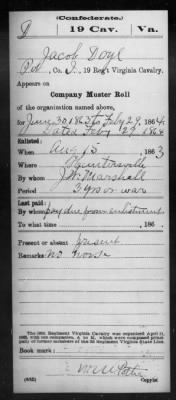 (Confederate.)
D 19 Cav. Va.
Jacob Doyl
Pvt., Co. I, 19 Reg't Virginia Cavalry.
Appears on
Company Muster Roll
of the organization named above,
for June 30, 1863 to Feby 29, 1864.
Dated Feby 29 1864
Enlisted:
When Aug 15, 1863
Where
By whom J. W. Marshall
Period 3 yrs or war
Last paid:
By whom pay due from enlistment
To what time , 186 .
Present or absent Present
Remarks: No horse
The 19th Regiment Virginia Cavalry was organized April 11,
1863, with ten companies, A to K, which were composed principally
of former members of the 3d Regiment Virginia State Line.
Book mark:
(635) Copyist.